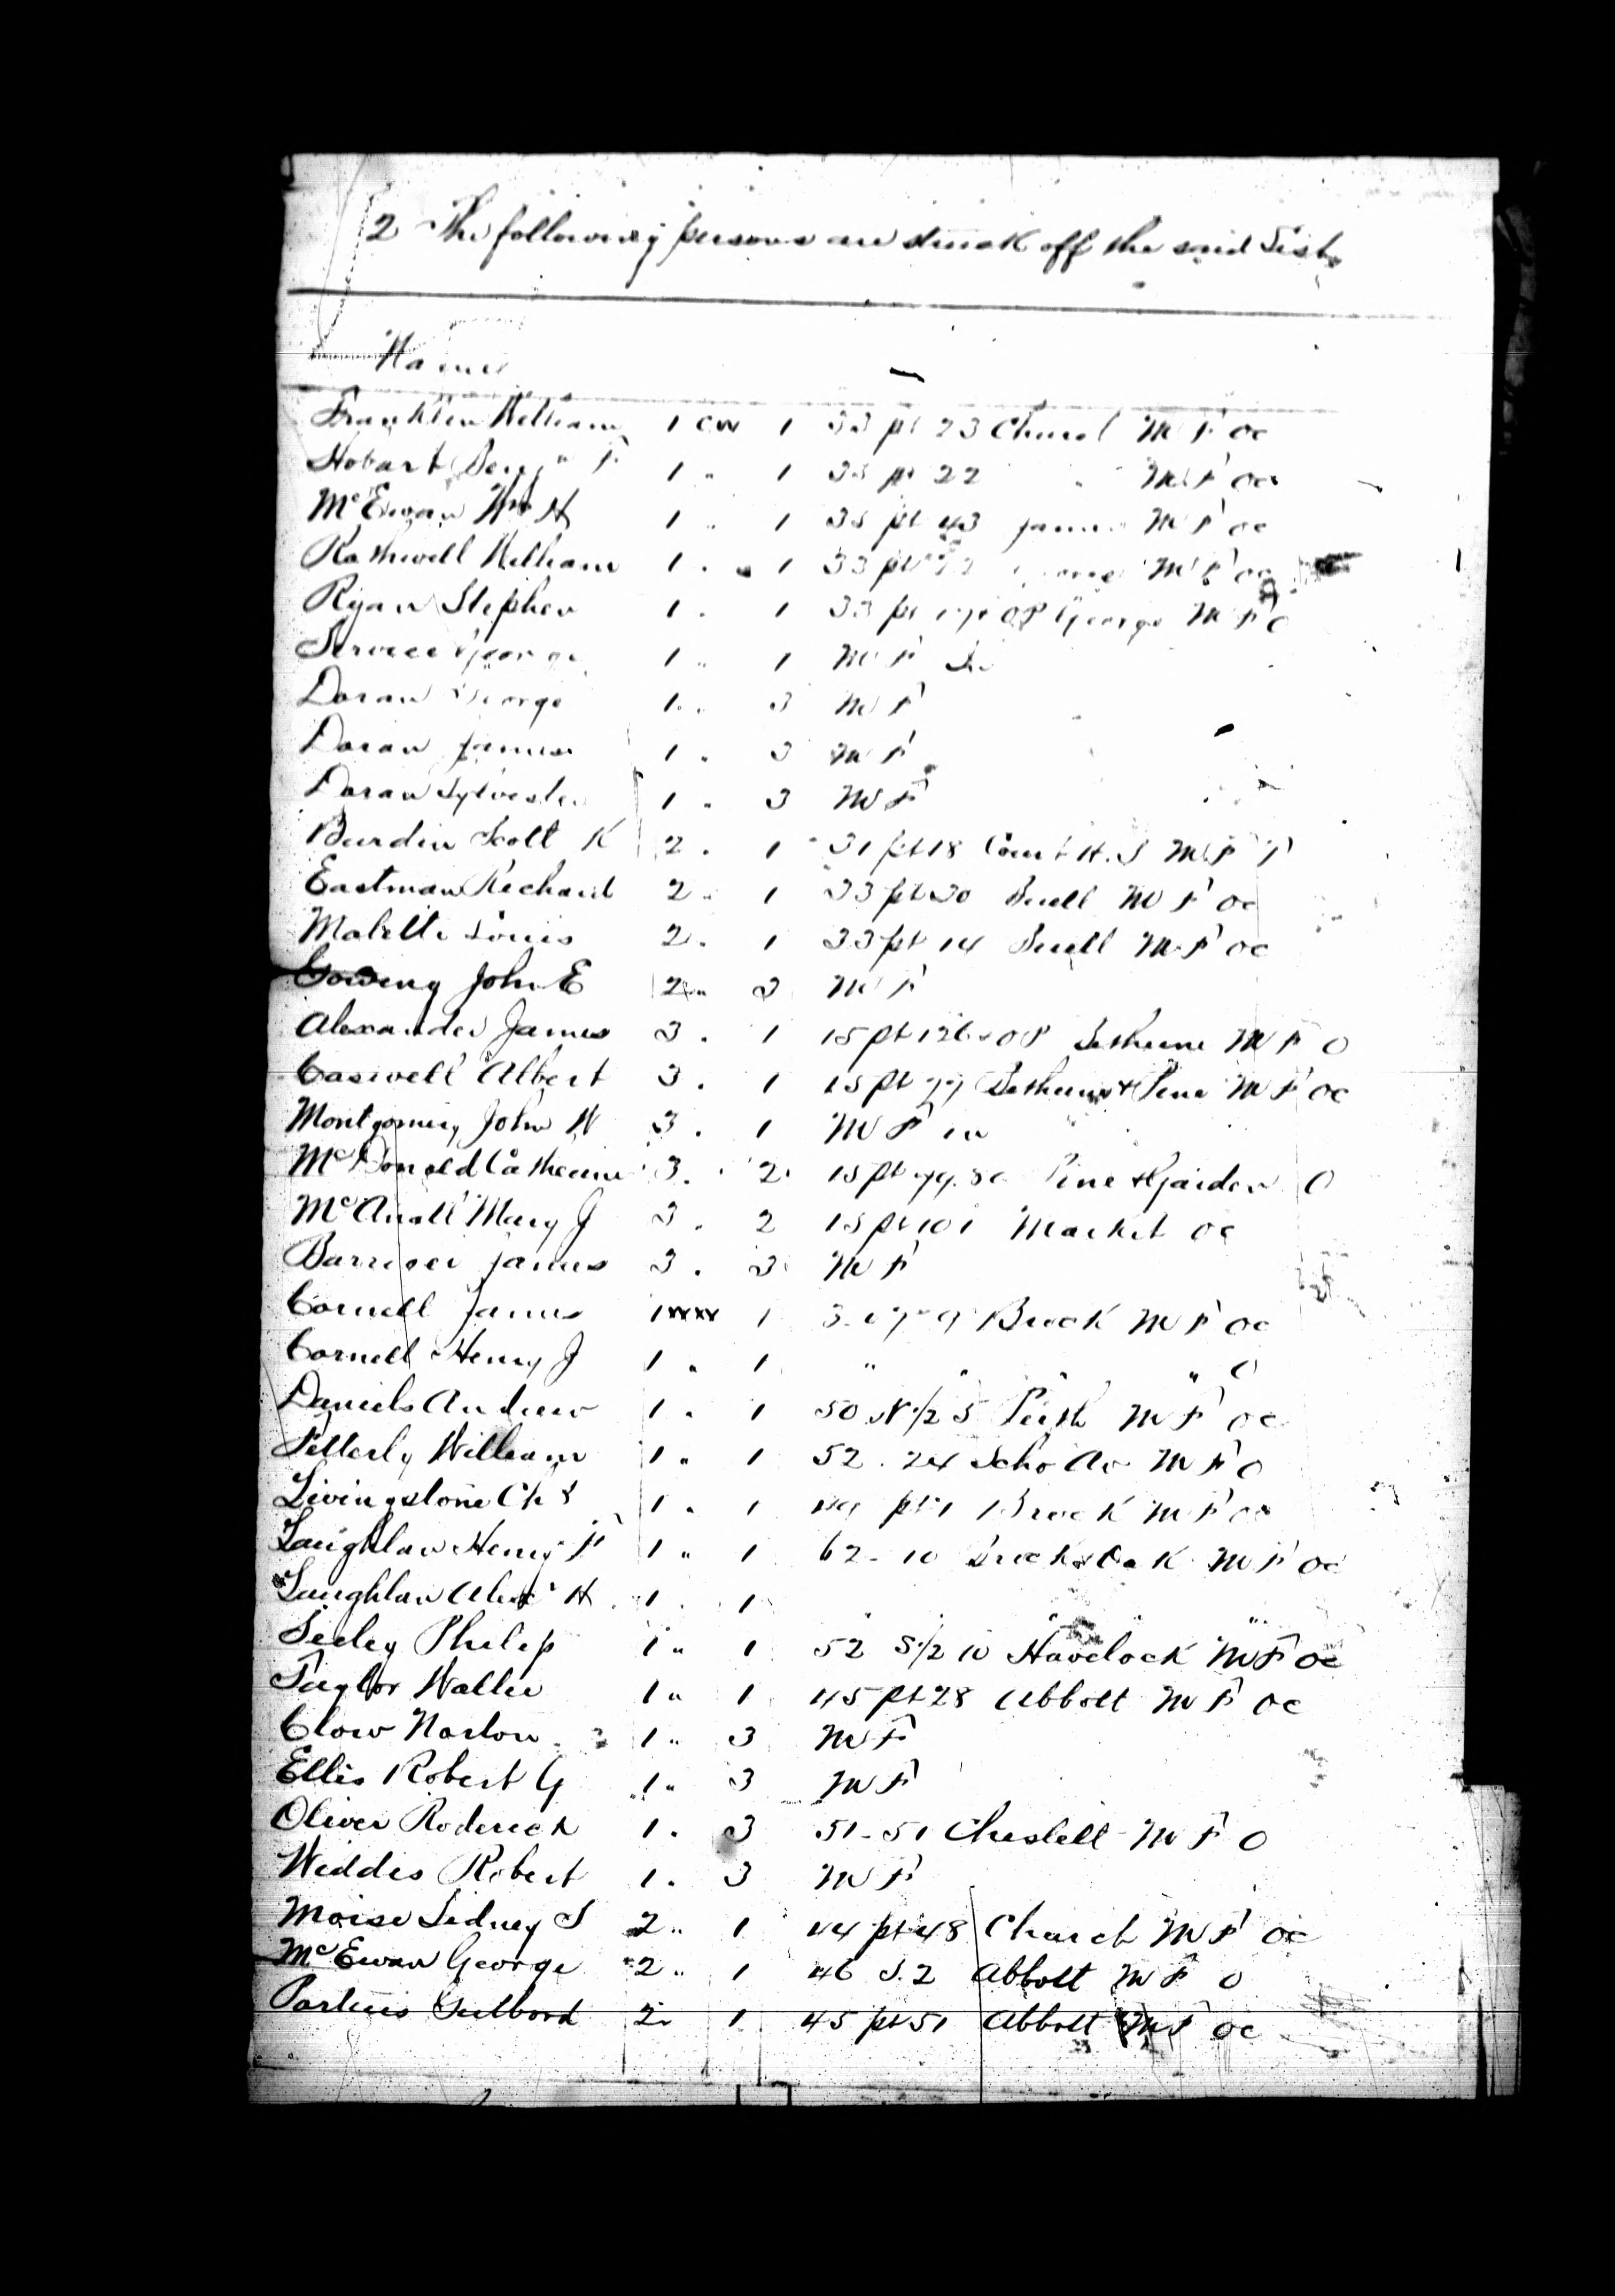 2 The following persons are struck off the said List
Name
Franklin William 1 CW 1 33 pt 23 Church M F oc
Hobart Benjn F 1 " 1 33 pt 22 " M F oc
McEwan Wm H 1 " 1 33 pt 43 James M F oc
Rothwell William 1 " 1 33 pt M F oc
Ryan Stephen 1 " 1 33 pt George M F O
Service George 1 " 1 M F
Doran George 1 " 3 M F
Doran James 1 " 3 M F
Doran Sylvester 1 " 3 M F
Burdin Scott K 2 " 1 31 pt 18 Court H. S M F T
Eastman Richard 2 " 1 33 pt 30 Buell M F oc
Malette Louis 2 " 1 33 pt 14 Buell M F oc
John E 2 " 3 M F
Alexander James 3 " 1 15 pt 126 Bethune M F O
Caswell Albert 3 " 1 15 pt 77 Bethune & Pine M F oc
Montgomery John W 3 " 1 M F in
McDonald Catherine 3 " 2 15 pt 79.80 Pine & Garden O
Mary J 3 " 2 15 pt 101 Market oc
Barriger James 3 " 3 M F
Cornell James 1 WW 1 Brock M F oc
Cornell Henry J 1 " 1 " " " O
Daniels Andrew 1 " 1 50 N 1/2 5 Perth M F oc
Fetterly William 1 " 1 52 . 24 Scho Av M F O
Livingstone Chs 1 " 1 49 pt 1 Brock M F oc
Laughlan Henry F 1 " 1 62 - 10 Brock & Oak M F oc
Laughlan Alexr H 1 " 1 " " "
Seeley Philip 1 " 1 52 S 1/2 10 Havelock M F oc
Taylor Walter 1 " 1 45 pt 28 Abbott M F oc
Clow Norton 1 " 3 M F
Ellis Robert G 1 " 3 M F
Oliver Roderick 1 " 3 51 - 51 Chislett M F O
Widdis Robert 1 " 3 M F
Moise Sidney S 2 " 1 44 pt 48 Church M F oc
McEwan George 2 " 1 46 S. 2 Abbott M F O
2 " 1 45 pt 51 Abbott M F oc